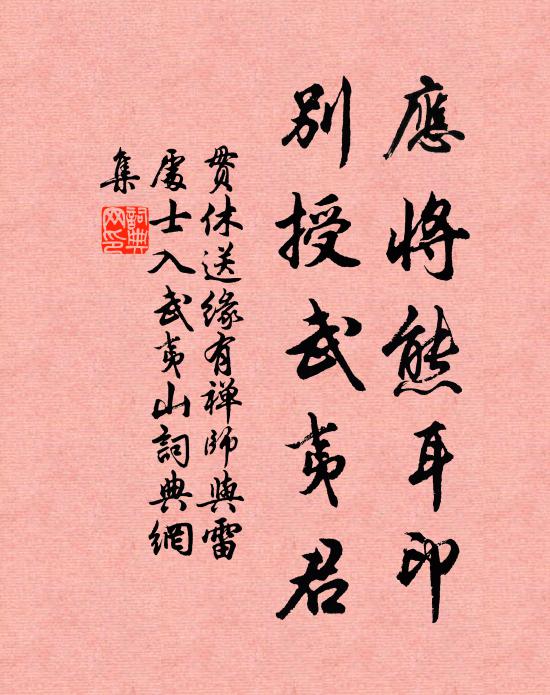 應將熊耳印
別授武夷君
貫休送緣有禅師與雷
處士入武夷山詞典網
集
詞典
网印